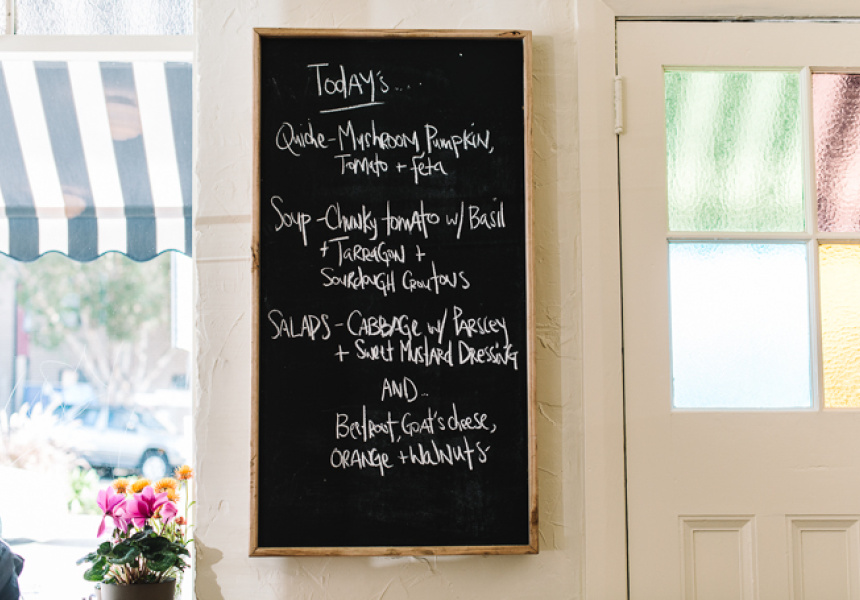 Today's....
Quiche - Mushroom, Pumpkin,
Tomato + feta
Soup - Chunky tomato w/ Basil
+ Tarragon +
Sourdough Croutons
SALADS - CABBAGE w/ PARSLEY
+ Sweet Mustard Dressing
AND..
Beetroot, Goat's cheese,
ORANGE + Walnuts